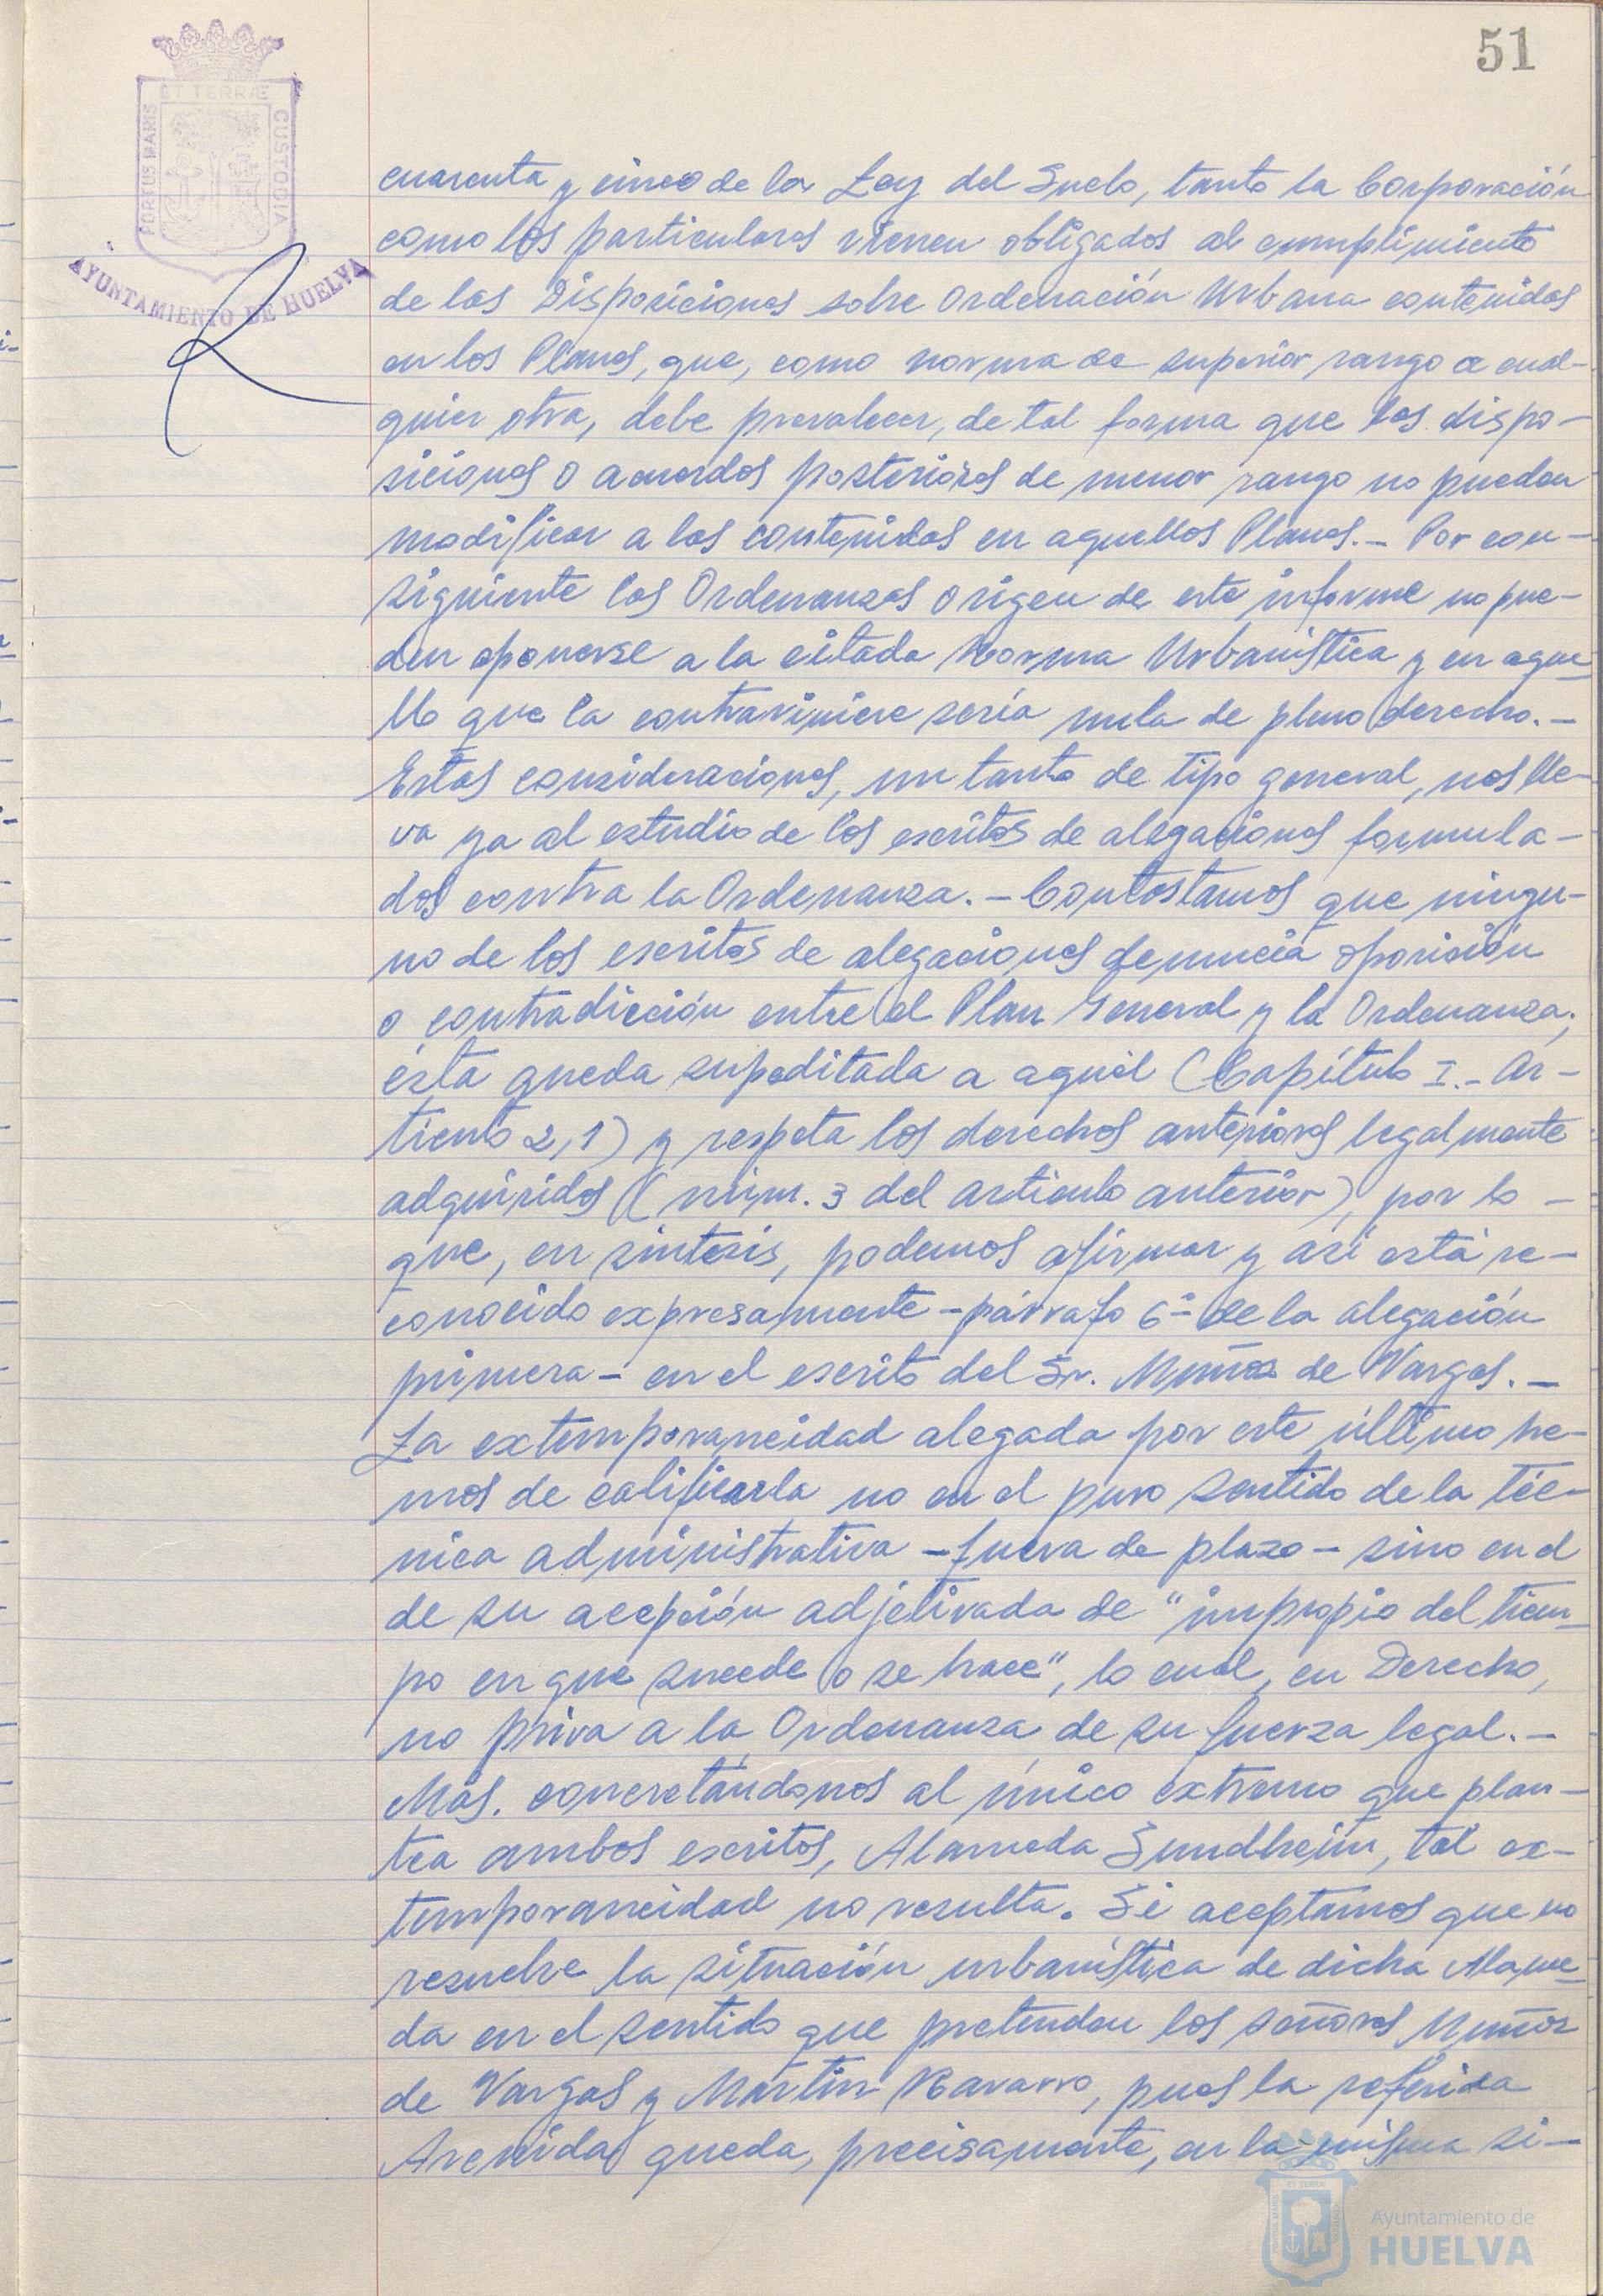 51
ET TERRÆ
PORTUS MARIS
CUSTODIA
AYUNTAMIENTO DE HUELVA
cuarenta y cinco de la Ley del Suelo, tanto la Corporación
como los particulares vienen obligados al cumplimiento
de las Disposiciones sobre Ordenación Urbana contenidas
en los Planes, que, como norma de superior rango a cual-
quier otra, debe prevalecer, de tal forma que las dispo-
siciones o acuerdos posteriores de menor rango no pueden
modificar a las contenidas en aquellos Planes.- Por con-
siguiente las Ordenanzas origen de este informe no pue-
den oponerse a la citada Norma Urbanística y en aque
llo que la contraviniere sería nula de pleno derecho.-
Estas consideraciones, un tanto de tipo general, nos lle-
va ya al estudio de los escritos de alegaciones formula-
dos contra la Ordenanza.- Contestamos que ningu-
no de los escritos de alegaciones denuncia oposición
o contradicción entre el Plan General y la Ordenanza;
ésta queda supeditada a aquél (Capítulo I.- Ar-
tículo 2,1) y respeta los derechos anteriores legalmente
adquiridos (núm. 3 del artículo anterior), por lo -
que, en síntesis, podemos afirmar y así está re-
conocido expresamente - párrafo 6º de la alegación
primera - en el escrito del Sr. Muñoz de Vargas.-
La extemporaneidad alegada por este último he-
mos de calificarla no en el puro sentido de la téc-
nica administrativa - fuera de plazo - sino en el
de su acepción adjetivada de "impropio del tiem-
po en que sucede o se hace", lo cual, en Derecho,
no priva a la Ordenanza de su fuerza legal.-
Más. concretándonos al único extremo que plan-
tea ambos escritos, Alameda Sundheim, tal ex-
temporaneidad no resulta. Si aceptamos que no
resuelve la situación urbanística de dicha Alame-
da en el sentido que pretenden los señores Muñoz
de Vargas y Martín Navarro, pues la referida
Avenida queda, precisamente, en la misma si-
Ayuntamiento de
HUELVA